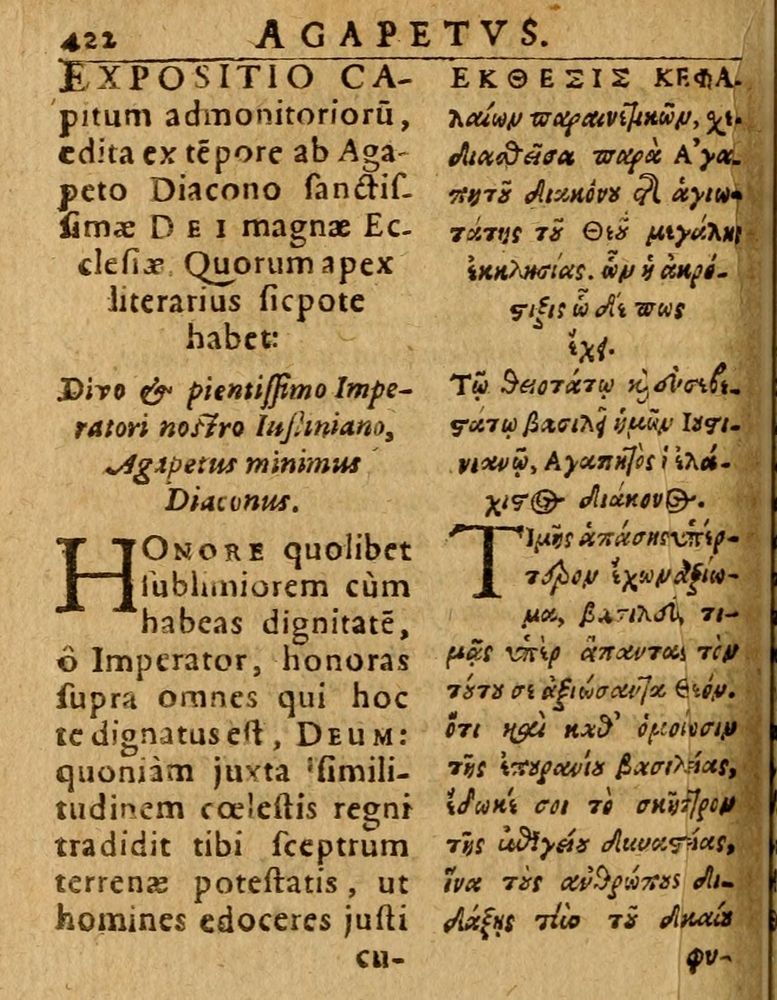 422 AGAPETVS.
EXPOSITIO CA-
pitum admonitoriorū,
edita ex tēpore ab Aga-
peto Diacono sanctis-
simæ DEI magnæ Ec-
clesiæ. Quorum apex
literarius sicpote
habet:
Divo & pientissimo Impe-
ratori nostro Iustiniano,
Agapetus minimus
Diaconus.
HONORE quolibet
sublimiorem cùm
habeas dignitatē,
ô Imperator, honoras
supra omnes qui hoc
te dignatus est, DEUM:
quoniàm juxta simili-
tudinem cœlestis regni
tradidit tibi sceptrum
terrenæ potestatis, ut
homines edoceres justi
cu-
ΕΚΘΕΣΙΣ ΚΕΦΑ-
λαίων παραινετικῶν, χε-
διασθεῖσα παρὰ Ἀγα-
πητοῦ διακόνου τῆς ἁγιω-
τάτης τοῦ Θεοῦ μεγάλης
ἐκκλησίας. ὧν ἡ ἀκρο-
στιχὶς ὧδέ πως
ἔχει.
Τῷ θειοτάτῳ καὶ εὐσεβε-
στάτῳ βασιλεῖ ἡμῶν Ἰουστι-
νιανῷ, Ἀγαπητὸς ὁ ἐλά-
χιστος διάκονος.
Τιμῆς ἁπάσης ὑπέρ-
τερον ἔχων ἀξίω-
μα, βασιλεῦ, τι-
μᾷς ὑπὲρ ἅπαντας τὸν
τούτου σε ἀξιώσαντα Θεόν.
ὅτι καὶ καθ' ὁμοίωσιν
τῆς ἐπουρανίου βασιλείας,
ἔδωκέ σοι τὸ σκῆπτρον
τῆς ἐπιγείου δυναστείας,
ἵνα τοὺς ἀνθρώπους δι-
δάξῃς τὴν τοῦ δικαίου
φυ-